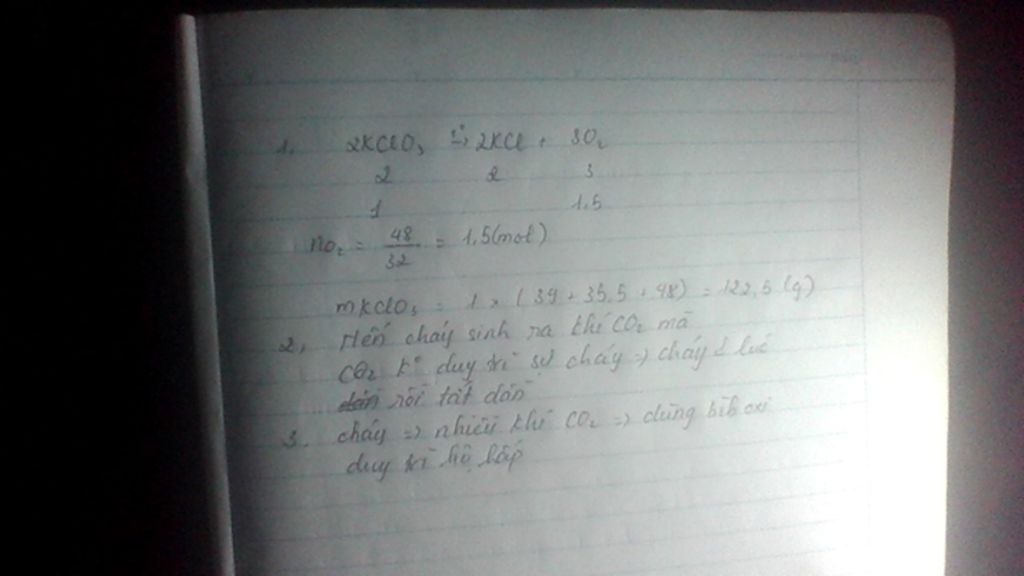 1. 2KClO₃ t°→ 2KCl + 3O₂
2 2 3
1 1.5
nO₂ = 48/32 = 1,5 (mol)
mKClO₃ = 1 x (39 + 35,5 + 48) = 122,5 (g)
2, Nến cháy sinh ra khí CO₂ mà
CO₂ k° duy trì sự cháy => cháy 1 lúc
rồi tắt dần
3. cháy => nhiều khí CO₂ => dùng bình oxi
duy trì hô hấp